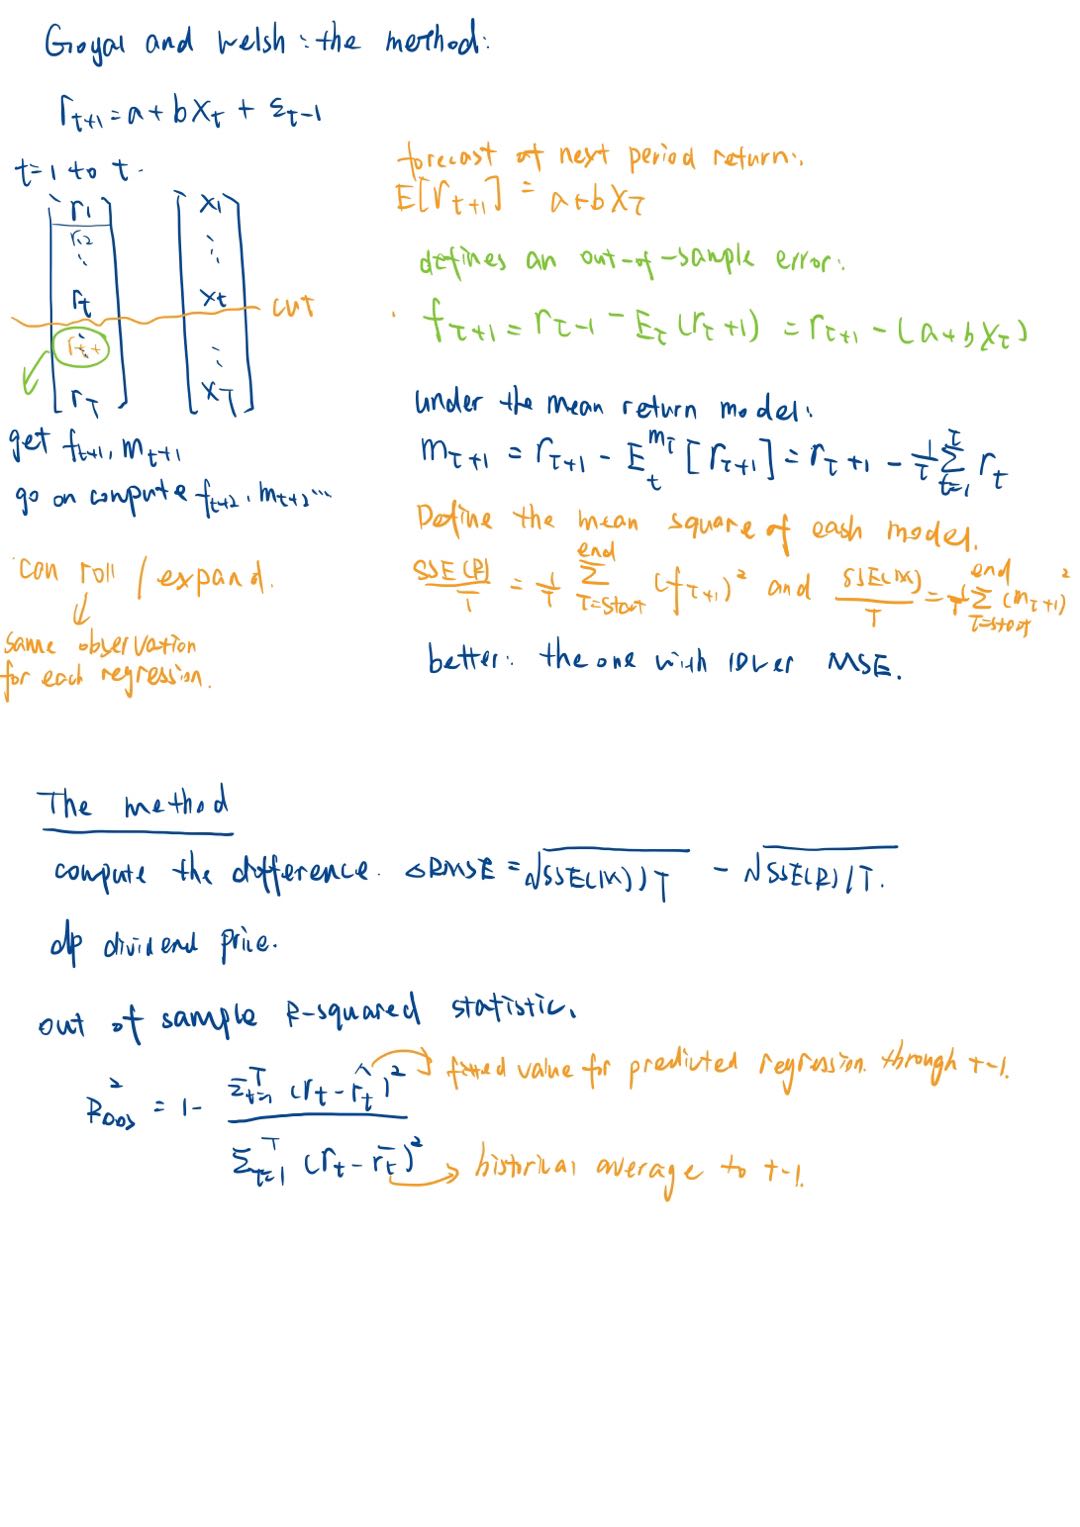 Goyal and Welsh : the method:
r_{t+1} = a + b X_t + ε_{t-1}
t=1 to t.
r_1 x_1
r_2 ⋮
⋮
r_t x_t cut
r_{t+1} ⋮
r_T x_T
get f_{t+1}, m_{t+1}
go on compute f_{t+2}, m_{t+2} ...
can roll / expand.
same observation
for each regression.
forecast of next period return:
E[r_{τ+1}] = a+bX_τ
defines an out-of-sample error:
f_{τ+1} = r_{τ-1} - E_τ(r_τ+1) = r_{τ+1} - (a+bX_τ)
under the mean return model:
m_{τ+1} = r_{τ+1} - E_t^{mτ}[r_{τ+1}] = r_{τ+1} - 1/τ Σ_{t=1}^{τ} r_t
Define the mean square of each model.
SSE(R)/T = 1/T Σ_{τ=start}^{end} (f_{τ+1})² and SSE(M)/T = 1/T Σ_{τ=start}^{end} (m_{τ+1})²
better: the one with lower MSE.
The method
compute the difference. ΔRMSE = √SSE(M)/T - √SSE(R)/T.
dp dividend price.
out of sample R-squared statistic.
R²_{OOS} = 1- Σ_{t=1}^{T} (r_t - r̂_t)² / Σ_{t=1}^{T} (r_t - r̄_t)²
fitted value for predicted regression through t-1.
historical average to t-1.